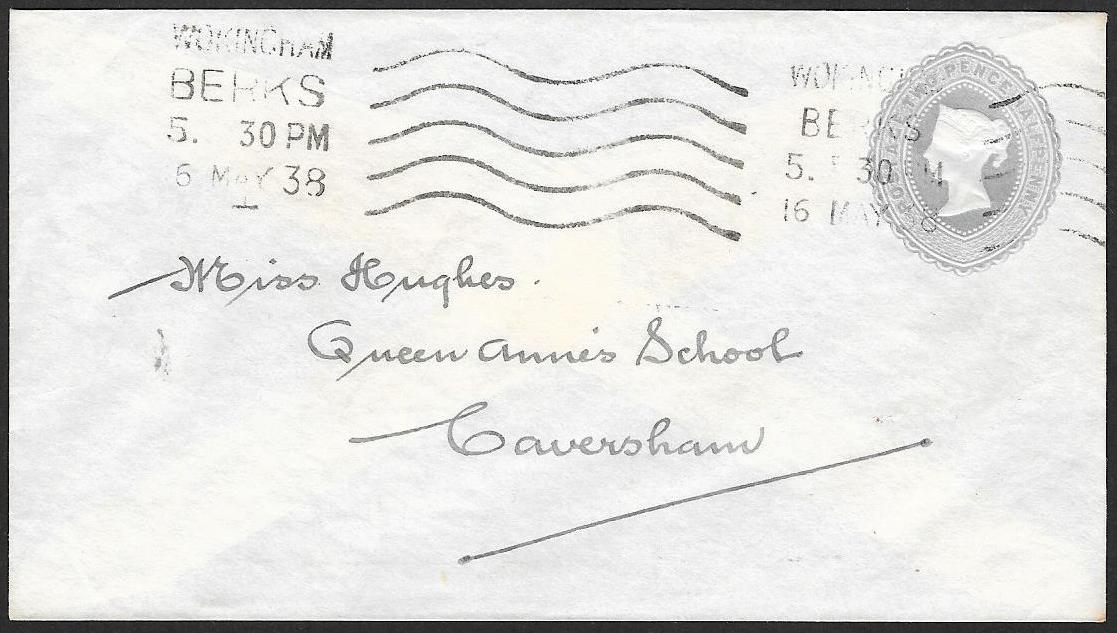 WOKINGHAM
BERKS
5. 30 PM
6 MAY 38
BERKS
5. 30 M
16 MAY 8
POSTAGE TWO PENCE HALFPENNY
Miss Hughes.
Queen Anne's School
Caversham